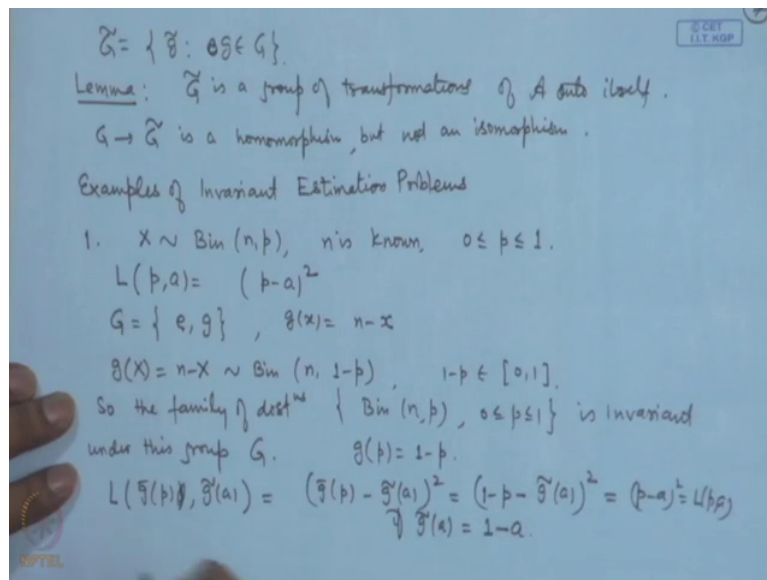 © CET
I.I.T. KGP
G̃ = { g̃ : g ∈ G}.
Lemma: G̃ is a group of transformations of A onto itself.
G → G̃ is a homomorphism, but not an isomorphism.
Examples of Invariant Estimation Problems
1. X ~ Bin (n, p), n is known, 0 ≤ p ≤ 1.
L(p,a) = (p-a)²
G = { e, g } , g(x) = n-x
g(X) = n-X ~ Bin (n, 1-p) , 1-p ∈ [0,1].
So the family of distⁿˢ { Bin (n,p) , 0≤p≤1} is invariant
under this group G. g(p) = 1-p.
L( g̅(p), g̃(a)) = (g̅(p) - g̃(a))² = (1-p- g̃(a))² = (p-a)² = L(p,a)
if g̃(a) = 1-a.
NPTEL